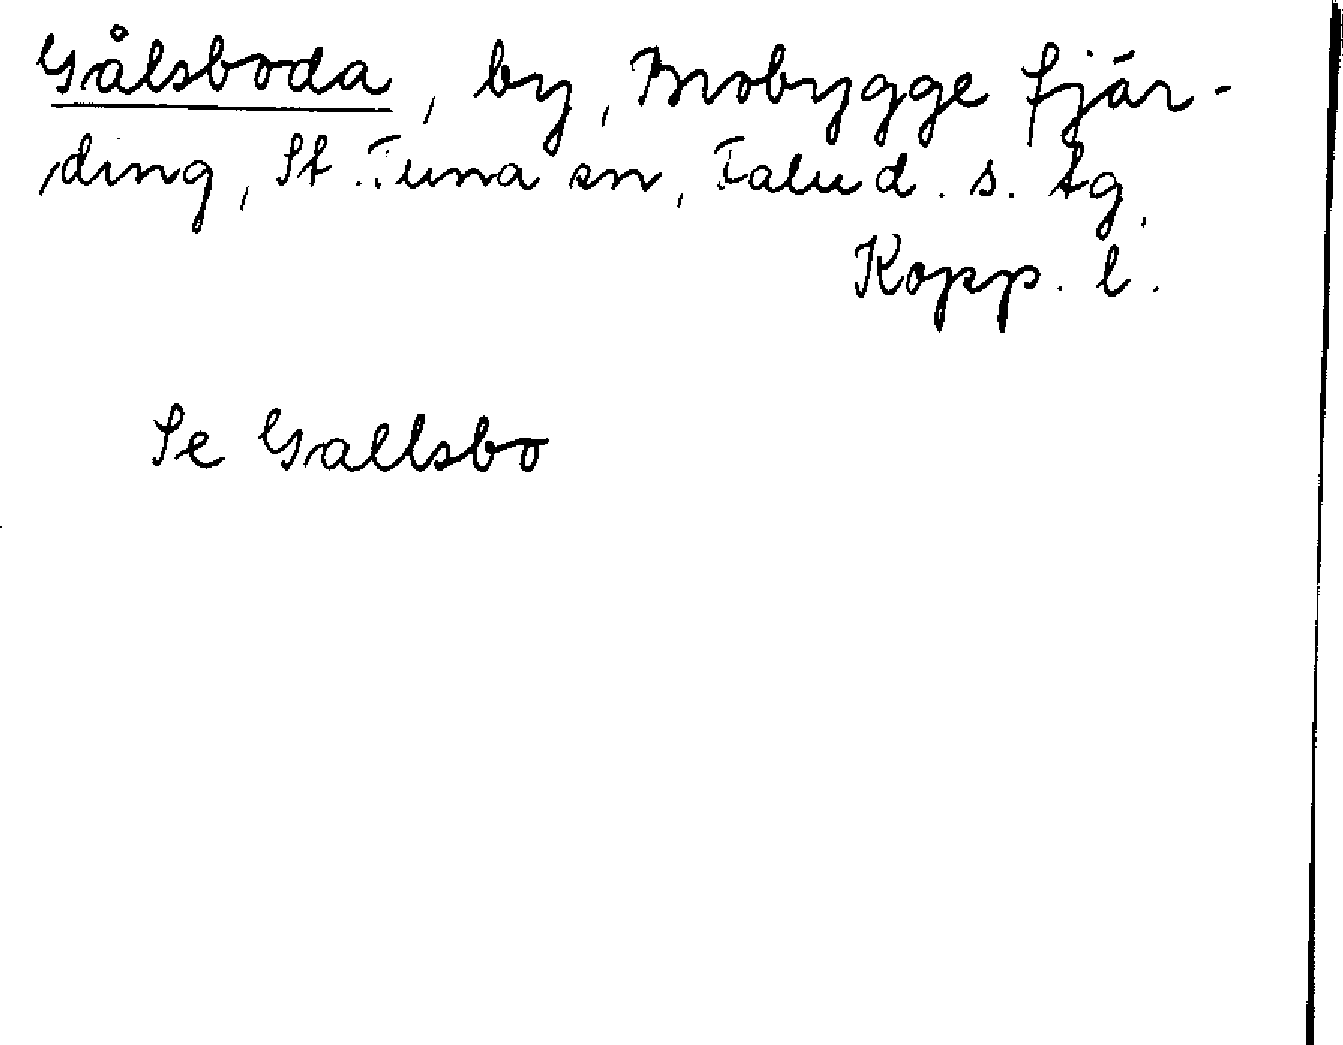 Gålsboda, by, Brobygge fjär-
ding, St. Tuna sn, Falu d. s. tg.
Kopp. l.
Se Gallsbo